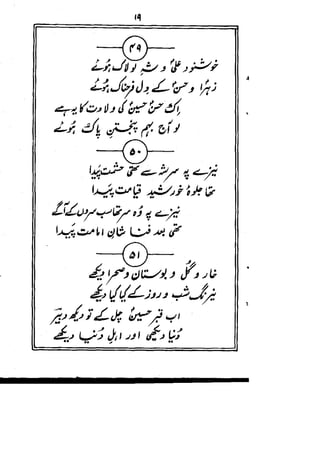 ۱۹
۴۹
خوشنود علیؑ و شہِ لولاک ہوئے
زہراؑ و حسنؑ کے دل فرحناک ہوئے
اک حسنؑ حسینؑ کی ولادت کا ہے
لو آج بہم پنجتن پاک ہوئے
۵۰
نیزے پہ سرِ شہ سے تھی حشمت پیدا
تھا جلوۂ خورشید قیامت پیدا
نیزے پہ وہ سر تھا سب سروں کے آگے
تھی بعد فنا شانِ امامت پیدا
۵۱
خار و گل و بوستان و صحرا دیکھے
نیرنگ شب و روز کے کیا کیا دیکھے
اب قبرِ حسینؑ چل کے تو دیکھ دبیرؔ
دنیا دیکھی اور اہلِ دنیا دیکھے